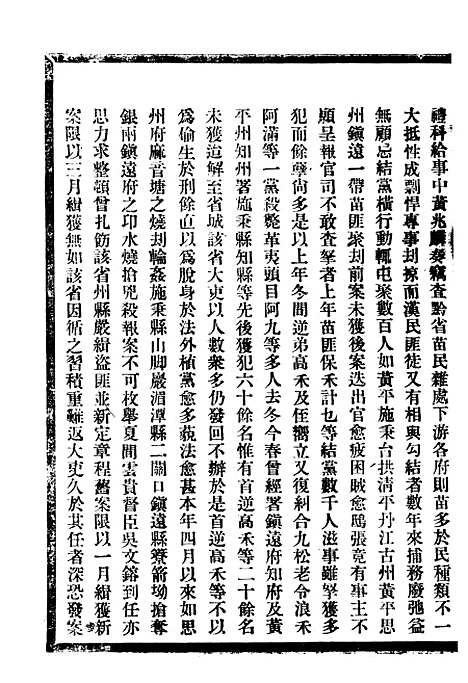 禮科給事中黃兆麟奏竊查黔省苗民雜處下游各府則苗多於民種類不一
大抵性成剽悍專事刦掠而漢民匪徒又有相與勾結者數年來捕務廢弛益
無顧忌結黨橫行動輒屯聚數百人如黃平施秉台拱清平丹江古州黃平思
州鎮遠一帶苗匪聚刦前案未獲後案迭出官愈疲困賊愈鴟張竟有事主不
願呈報官司不敢查拏者上年苗匪保禾計也等結黨數千人滋事雖拏獲多
犯而餘孽尙多是以上年冬間逆弟高禾及侄嚮立又復糾合九松老令浪禾
阿滿等一黨殺斃革夷頭目阿九等多人去冬今春曾經署鎮遠府知府及黃
平州知州署施秉縣知縣等先後獲犯六十餘名惟有首逆高禾等二十餘名
未獲迨解至省城該省大吏以人數衆多仍發回不辦於是首逆高禾等不以
爲偷生於刑餘直以爲脫身於法外植黨愈多藐法愈甚本年四月以來如思
州府麻音塘之燒刦輪姦施秉縣山脚嚴湄潭縣二關口鎮遠縣簝箭坳搶奪
銀兩鎮遠府之卬水燒搶兇殺報案不可枚舉夏間雲貴督臣吳文鎔到任亦
思力求整頓曾扎飭該省州縣嚴緝盜匪並新定章程舊案限以一月緝獲新
案限以三月緝獲無如該省因循之習積重難返大吏久於其任者深恐發案